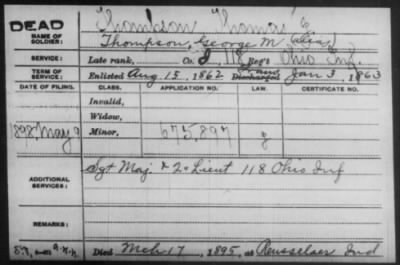 DEAD
NAME OF SOLDIER:
Thompson Thomas C
Thompson, George M (alias)
SERVICE:
Late rank, Co. I, 118 Reg't Ohio Inf.
TERM OF SERVICE:
Enlisted Aug 15, 1862 Discharged Jan 3, 1863
DATE OF FILING. CLASS. APPLICATION NO. LAW. CERTIFICATE NO.
Invalid,
Widow,
1898 May 9 Minor, 675,897 g
ADDITIONAL SERVICES:
Sgt Maj & 2d Lieut 118 Ohio Inf
REMARKS:
Died Mch 17, 1895, at Rensselaer Ind